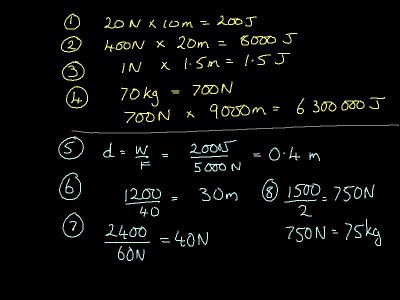 ① 20N x 10m = 200J
② 400N x 20m = 8000 J
③ 1N x 1.5m = 1.5 J
④ 70kg = 700N
700N x 9000m = 6 300 000 J
⑤ d = W/F = 2000J/5000N = 0.4 m
⑥ 1200/40 = 30m
⑧ 1500/2 = 750N
750N = 75kg
⑦ 2400/60N = 40N